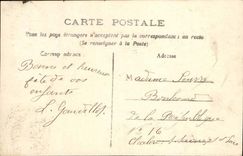 CARTE POSTALE
Tous les pays étrangers n'acceptent pas la correspondance au recto
(Se renseigner à la Poste)
Correspondance
Adresse
Bonne et heureuse
fête de vos
enfants
Madame
Boulevard
de la République
n° 16